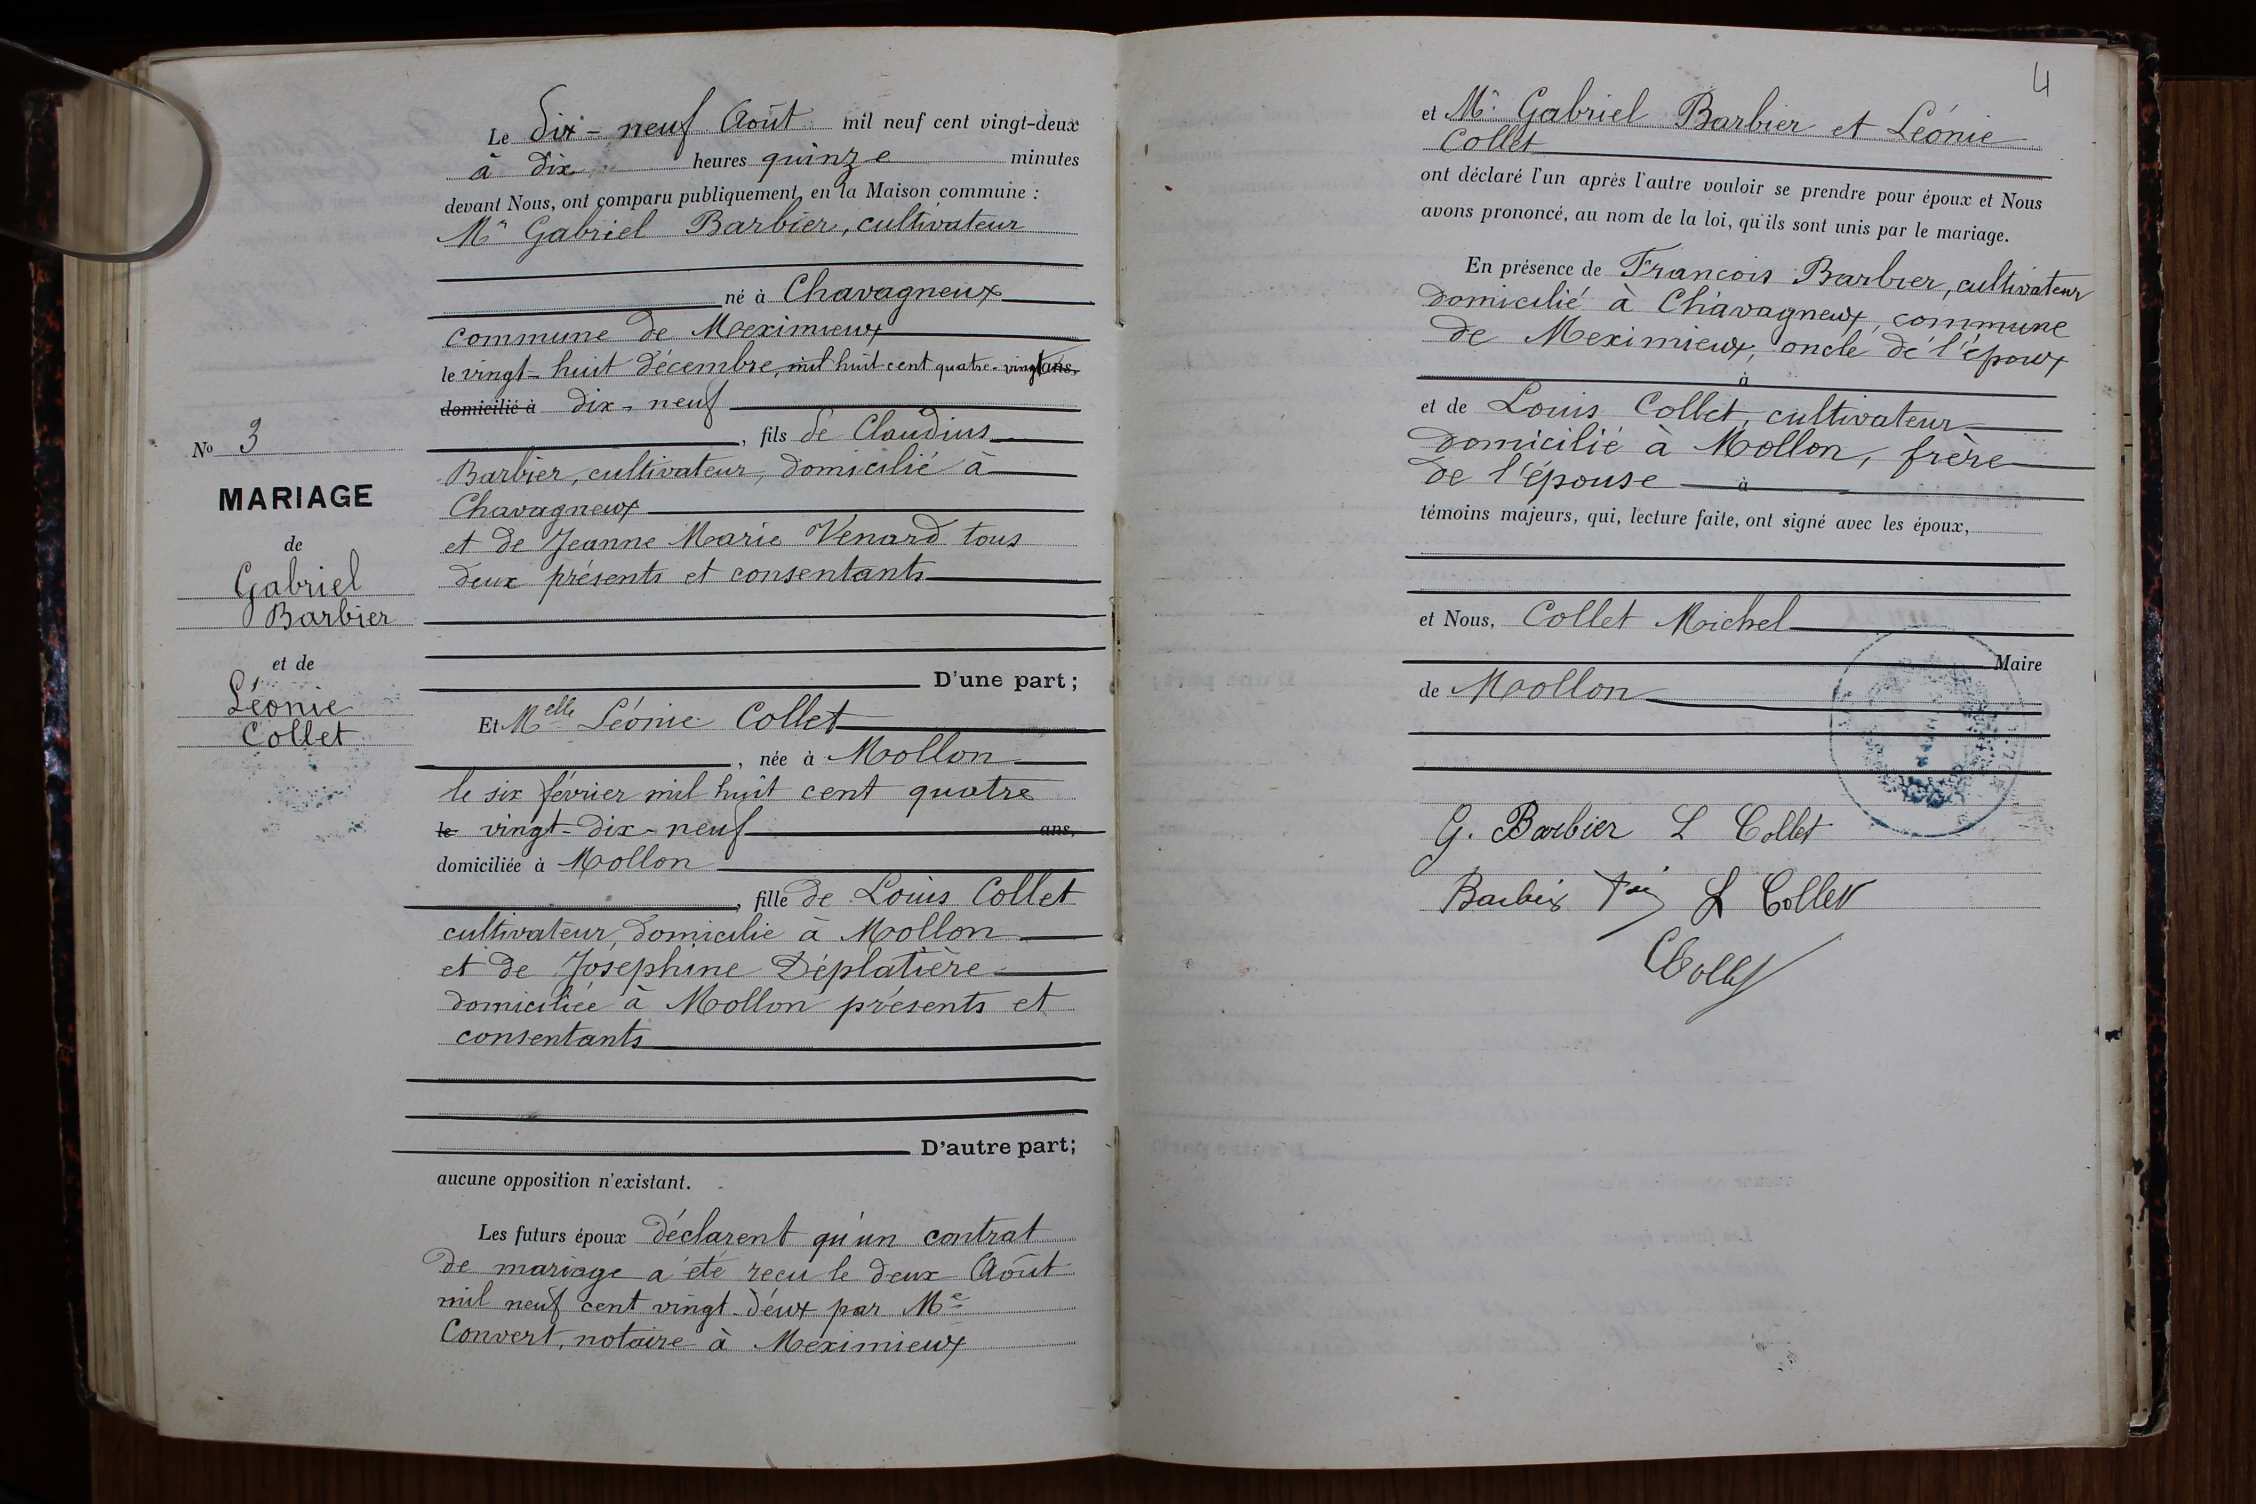 Le Dix-neuf Août mil neuf cent vingt-deux
à dix heures quinze minutes
devant Nous, ont comparu publiquement, en la Maison commune :
Mr Gabriel Barbier, cultivateur
né à Chavagneux
commune de Meximieux
le vingt-huit décembre, mil huit cent quatre-vingt ans,
domicilié à dix-neuf
, fils de Claudius
Barbier, cultivateur, domicilié à
Chavagneux
et de Jeanne Marie Venard tous
deux présents et consentants
D'une part ;
No 3
MARIAGE
de
Gabriel
Barbier
et de
Léonie
Collet
Et Melle Léonie Collet
, née à Mollon
le six février mil huit cent quatre
le vingt-dix-neuf ans,
domiciliée à Mollon
, fille de Louis Collet
cultivateur, domicilié à Mollon
et de Joséphine Déplatière
domiciliée à Mollon présents et
consentants
D'autre part ;
aucune opposition n'existant.
Les futurs époux déclarent qu'un contrat
de mariage a été reçu le deux Août
mil neuf cent vingt-deux par Me
Convert, notaire à Meximieux
4
et Mr Gabriel Barbier et Léonie
Collet
ont déclaré l'un après l'autre vouloir se prendre pour époux et Nous
avons prononcé, au nom de la loi, qu'ils sont unis par le mariage.
En présence de François Barbier, cultivateur
domicilié à Chavagneux, commune
de Meximieux, oncle de l'époux
à
et de Louis Collet, cultivateur
domicilié à Mollon, frère
de l'épouse à
témoins majeurs, qui, lecture faite, ont signé avec les époux,
et Nous, Collet Michel
Maire
de Mollon
G. Barbier L Collet
Barbier L Collet
Collet